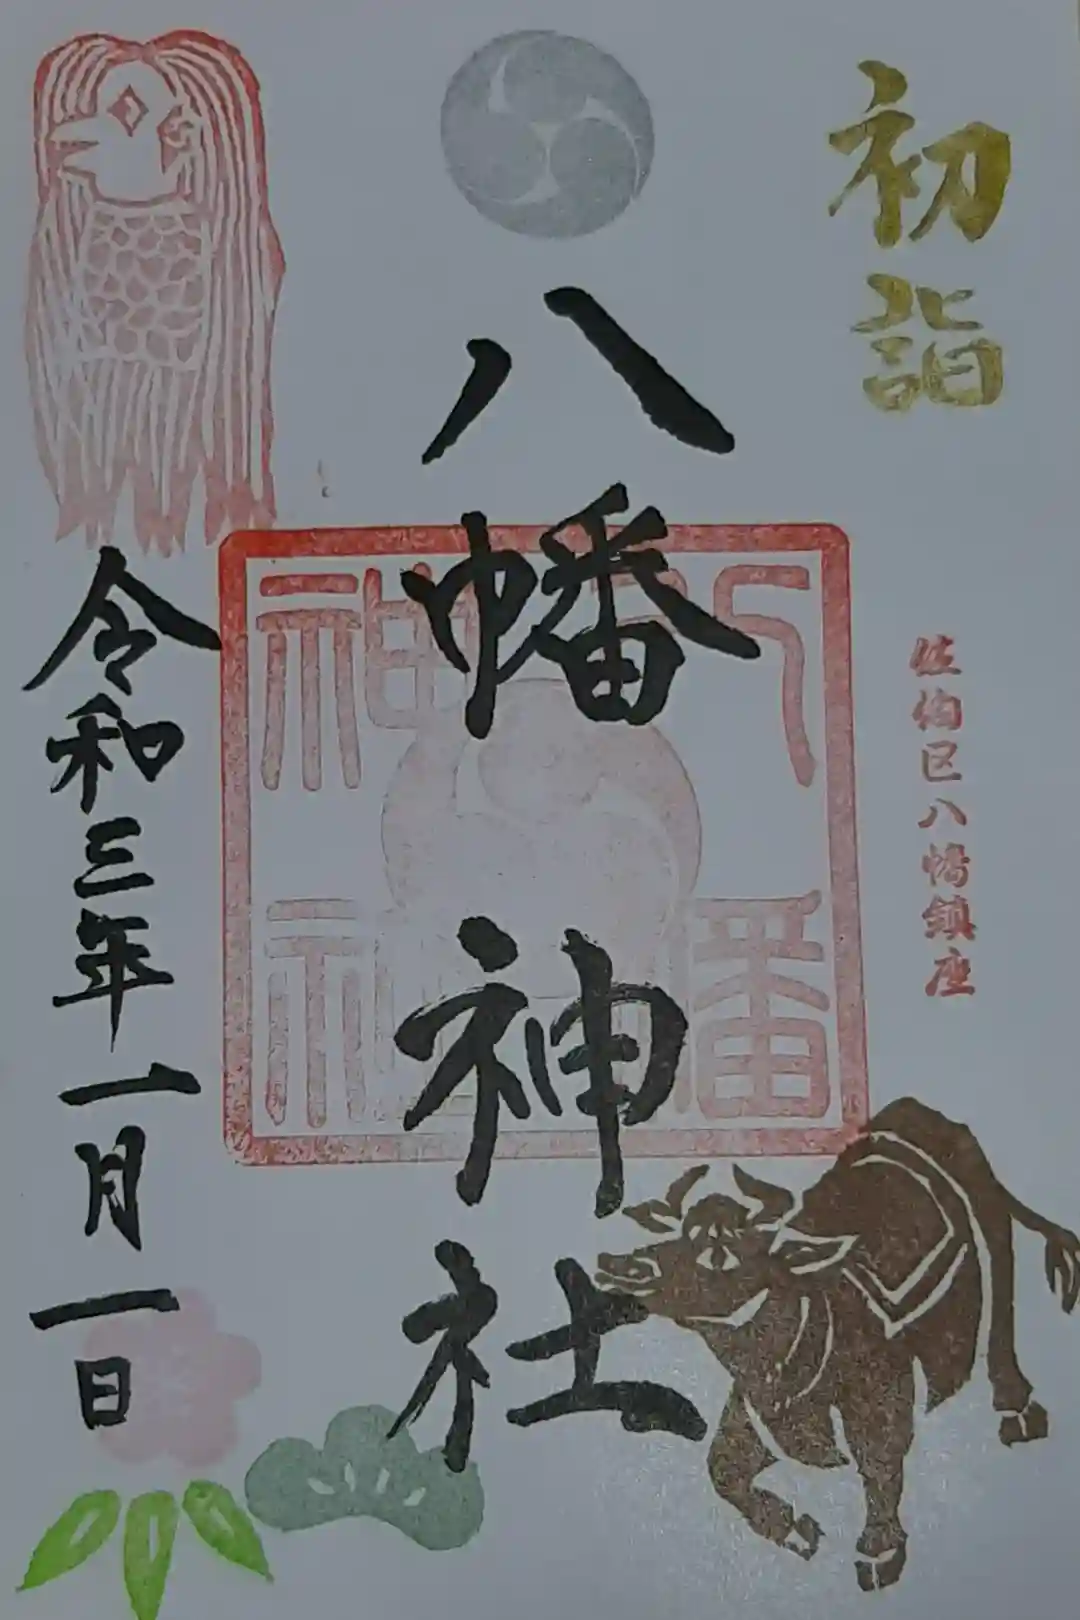 初詣
佐伯区八幡鎮座
八幡神社
八幡
神社
令和三年一月一日